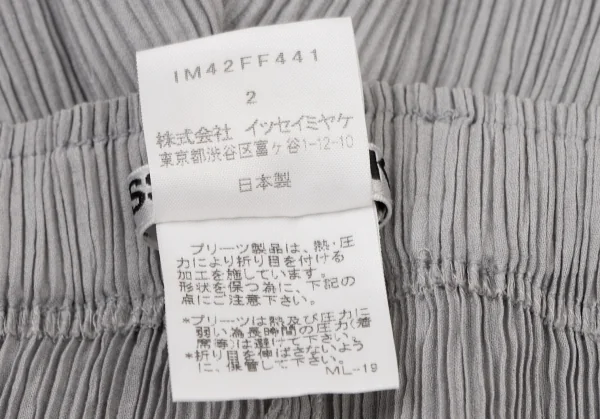 IM42FF441
2
株式会社 イッセイミヤケ
東京都渋谷区富ヶ谷1-12-10
日本製
プリーツ製品は、熱・圧
力により折り目を付ける
加工を施しています。
形状を保つ為に、下記の
点にご注意下さい。
*プリーツは熱及び圧力に
弱い為長時間の圧力(着
席等)は避けて下さい。
*折り目を伸ばさないよう
に、保管して下さい。
ML-19